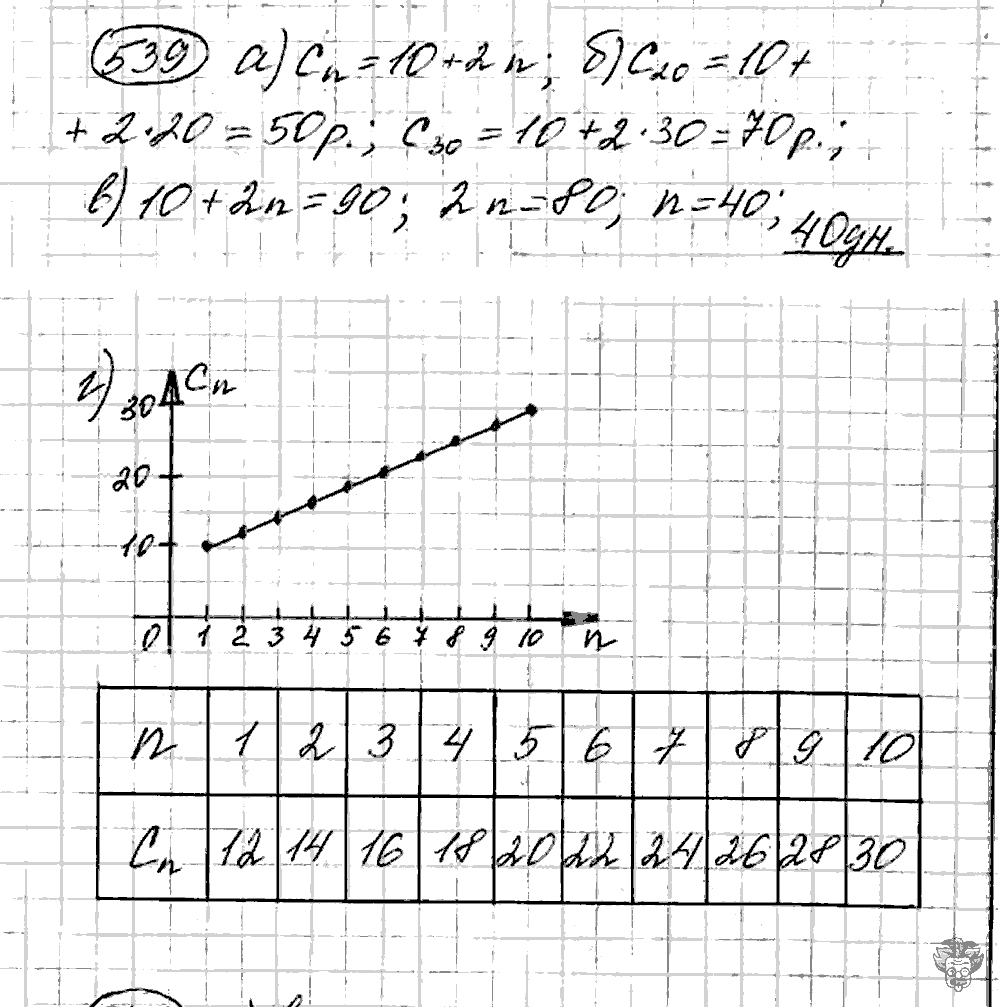 539 а) Cn = 10 + 2n; б) C20 = 10 +
+ 2·20 = 50р.; C30 = 10 + 2·30 = 70р.;
в) 10 + 2n = 90; 2n = 80; n = 40;
40дн.
г) Cn
30
20
10
0 1 2 3 4 5 6 7 8 9 10 n
n 1 2 3 4 5 6 7 8 9 10
Cn 12 14 16 18 20 22 24 26 28 30